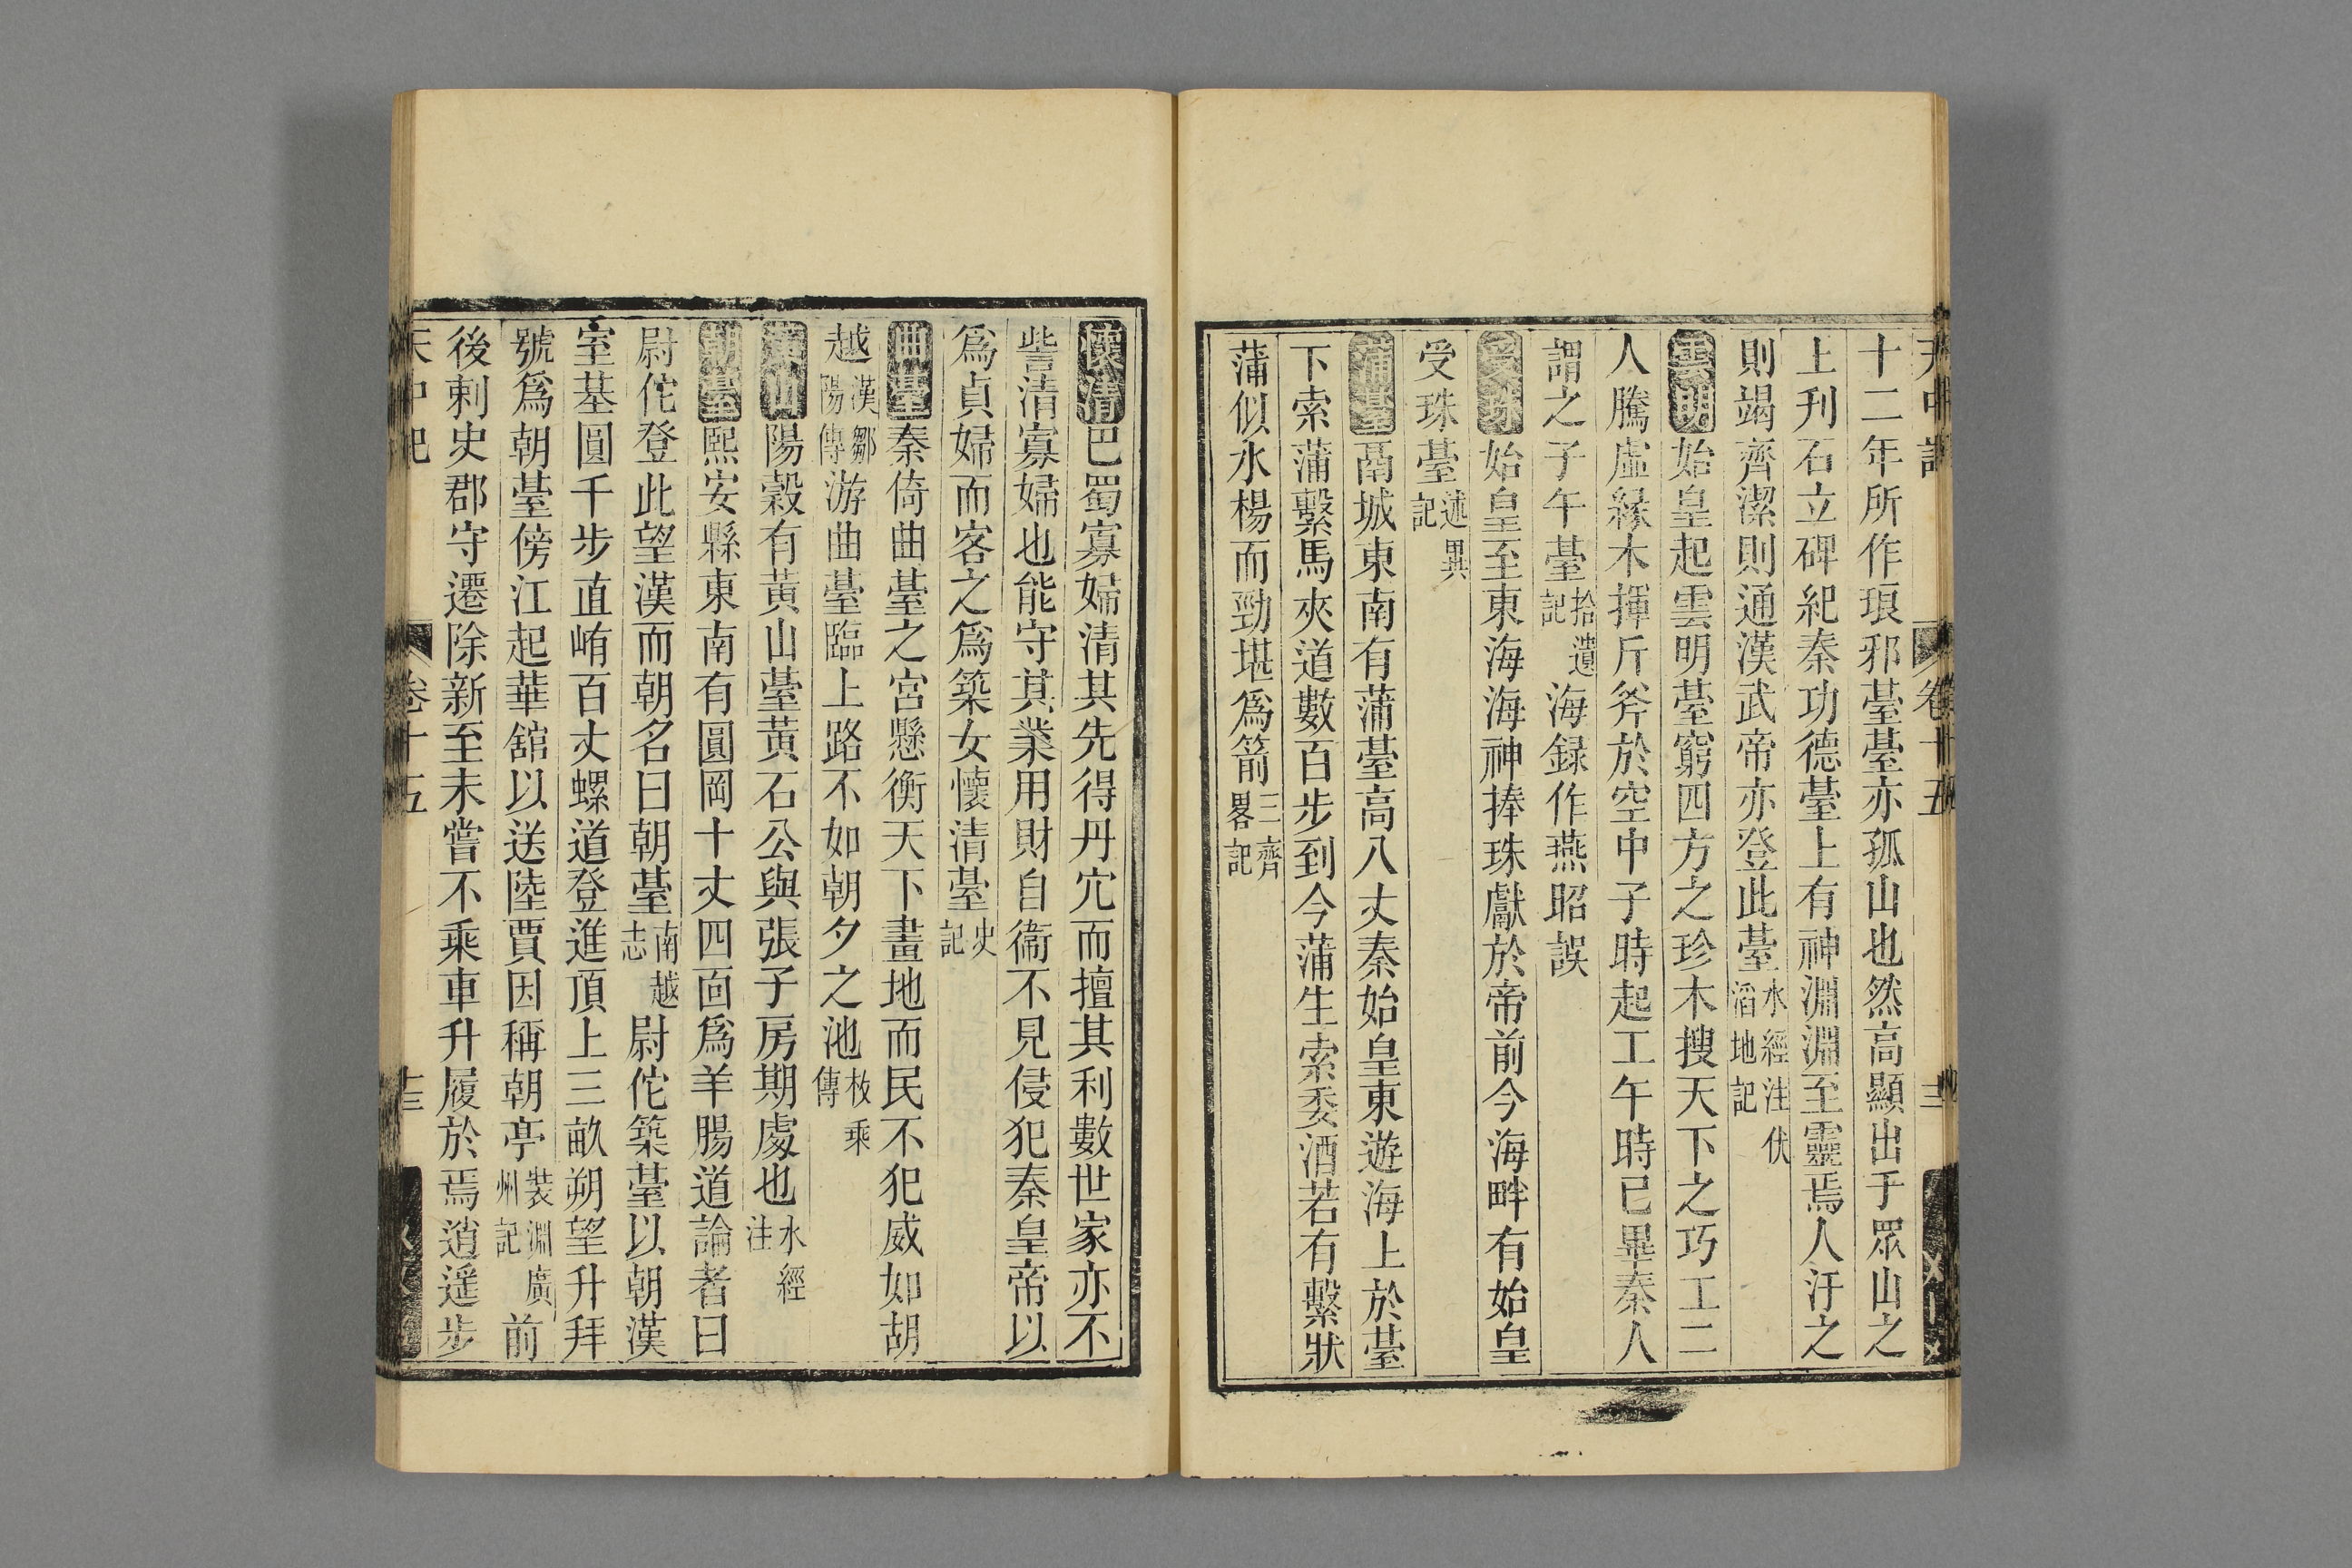 十二年所作琅邪臺臺亦孤山也然高顯出于眾山之
上刋石立碑紀秦功德臺上有神淵淵至靈焉人汙之
則竭齊潔則通漢武帝亦登此臺水經注伏滔地記
雲明始皇起雲明臺窮四方之珍木搜天下之巧工二
人騰虛緣木揮斤斧於空中子時起工午時已畢秦人
謂之子午臺拾遺記海録作燕昭誤
受珠始皇至東海海神捧珠獻於帝前今海畔有始皇
受珠臺述異記
蒲臺鬲城東南有蒲臺高八丈秦始皇東遊海上於臺
下索蒲繫馬夾道數百步到今蒲生索委酒若有繫狀
蒲似水楊而勁堪爲箭三齊畧記
懷清巴蜀寡婦清其先得丹穴而擅其利數世家亦不
訾清寡婦也能守其業用財自衞不見侵犯秦皇帝以
爲貞婦而客之爲築女懷清臺史記
曲臺秦倚曲臺之宮懸衡天下畫地而民不犯威如胡
越漢鄒陽傳游曲臺臨上路不如朝夕之池枚乘傳
黃山陽榖有黃山臺黃石公與張子房期處也水經注
朝臺熙安縣東南有圓岡十丈四面爲羊腸道論者曰
尉佗登此望漢而朝名曰朝臺南越志尉佗築臺以朝漢
室基圓千步直峭百丈螺道登進頂上三畝朔望升拜
號爲朝臺傍江起華舘以送陸賈因稱朝亭裴淵廣州記前
後刺史郡守遷除新至未嘗不乘車升履於焉逍遥步
天中記 卷十五 十三